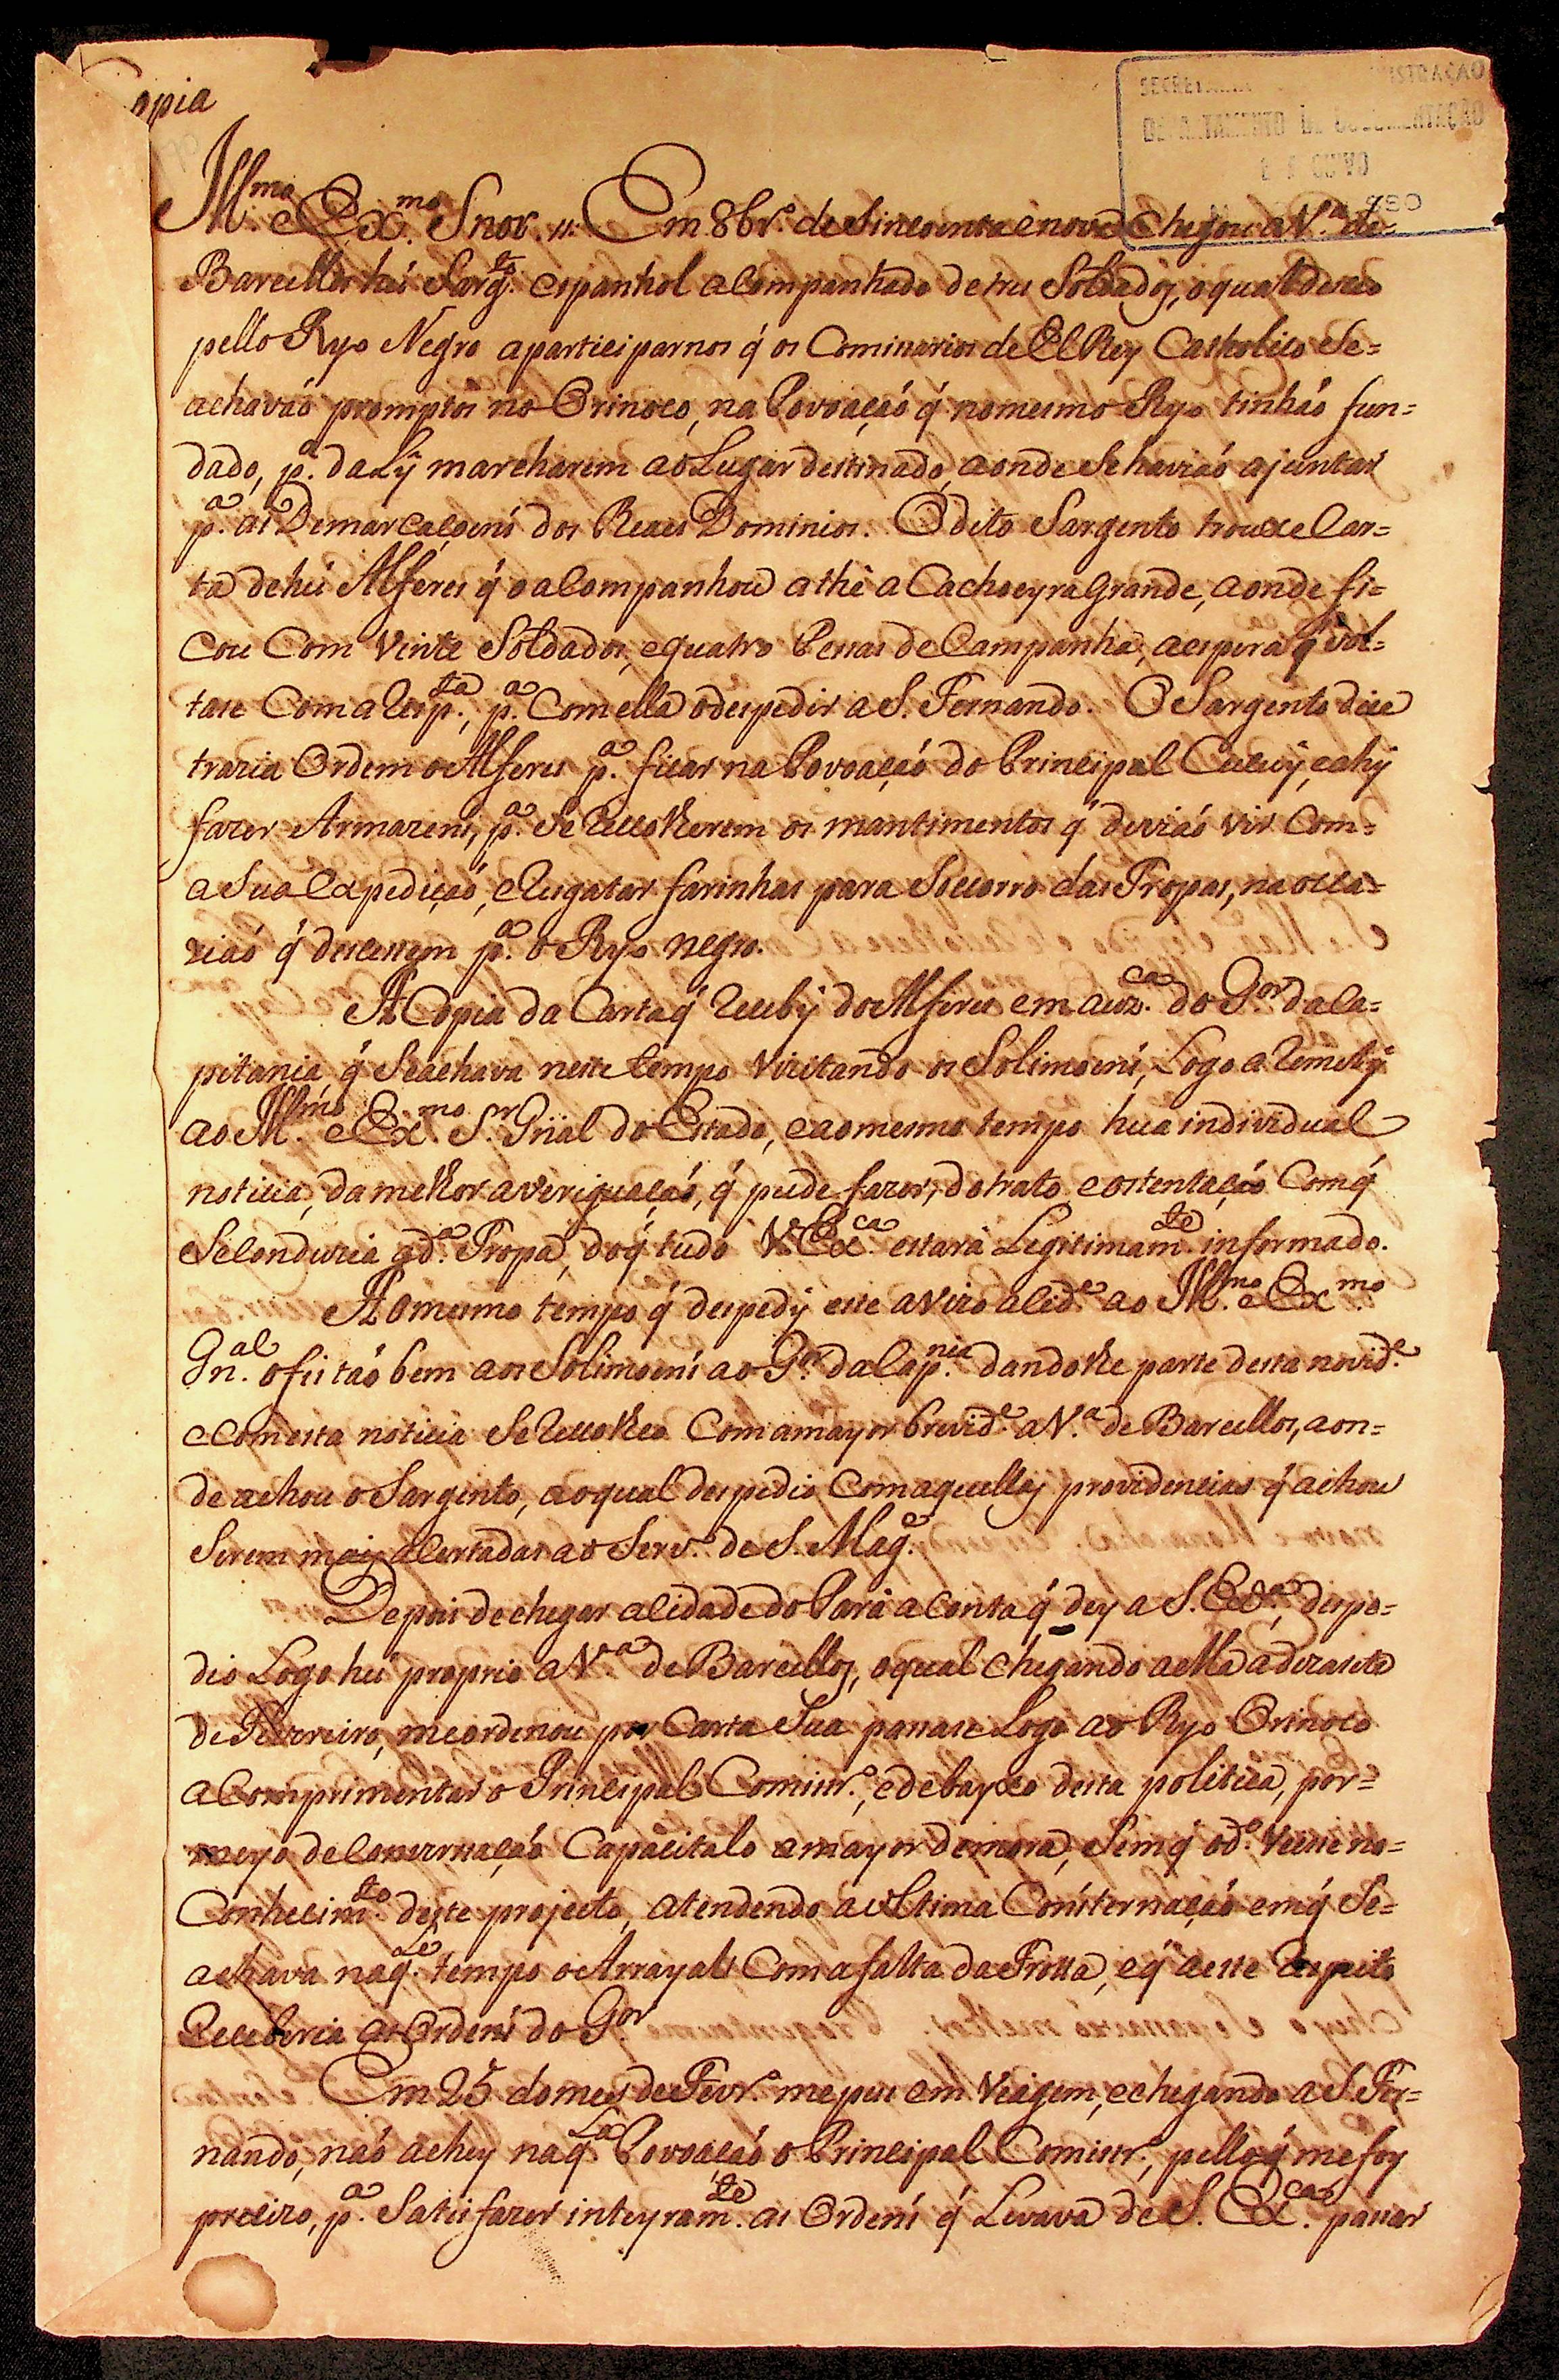 opia
SECRETARIA ISTRAÇÃO
DEPARTAMENTO DE DOCUMENTAÇÃO
980
Ill.mo e Ex.mo Snor. // Em 8br.o de Sincoenta e nove chegou a V.a de=
Barcellos hũ Sarg.to espanhol acompanhado de tres Soldados, o qual deceo
pello Ryo Negro a participarnos q̃ os Comissarios de El Rey Catholico Se=
achavaõ promptos no Orinoco, na Povoaçaõ q̃ no mesmo Ryo tinhaõ fun=
dado, p.a daLÿ marcharem ao Lugar destinado, aonde Se haviaõ ajuntar
p.a as Demarcaçoens dos Reaes Dominios. O dito Sargento trouxe Car=
ta de hũ Alferes q̃ o acompanhou athê a Cachoeyra Grande, aonde fi=
cou Com Vinte Soldados, e quatro Pessas de Campanha, a espera q̃ vol=
tase Com a Resp.ta, p.a Com ella o despedir a S. Fernando. O Sargento dice
trazia Ordem o Alferes p.a ficar na Povoaçaõ do Principal Cucuÿ, e ahÿ
fazer Armazens, p.a Se Recolherem os mantimentos q̃ deviaõ vir Com=
a Sua Expediçaõ, e Resgatar farinhas para Socorro das Tropas, na occa=
ziaõ q̃ descessem p.a o Ryo negro.
A Copia da Carta q̃ Recebÿ do Alferes em auz.ca do G.or da Ca=
pitania, q̃ Se achava neste tempo Vizitando os Solimoens, Logo a Remetÿ
ao Ill.mo e Ex.mo S.r Gñal do Estado, e ao mesmo tempo hua individual
noticia, da melhor averiguaçaõ, q̃ pude fazer, do trato e ostentaçaõ Com q̃
Se Conduzia a d.a Tropa, do q̃ tudo V. Ex.ca estarà Legitimam.te informado.
Ao mesmo tempo q̃ despedÿ este avizo a Cid.e ao Ill.mo e Ex.mo
Gn.al o fis taõ bem aos Solimoens ao G.or da Cap.nia dandolhe parte desta novid.e
e Com esta noticia Se Recolheo Com a mayor brevid.e a V.a de Barcellos, aon=
de achou o Sargento, ao qual despedio Com aquellas providencias q̃ achou
Serem mais acertadas ao Serv.o de S. Mag.e
Depois de chegar a Cidade do Parà a Conta q̃ dey a S. Ex.a, despe=
dio Logo hũ proprio a V.a de Barcellos, o qual chegando a ella a dezasete
de Fevereiro, me ordenou por Carta Sua passase Logo ao Ryo Orinoco
a Comprimentar o Principal Comissr.o, e debayxo desta politica, por=
meyo de Conversaçaõ Capacitalo a mayor demora, Sem q̃ o d.o Viesse no=
Conhecim.to deste projecto, atendendo a ultima Consternaçaõ em q̃ Se=
achava naq.le tempo o Arrayal Com a falta da Frotta, e q̃ a este Respeito
Receberia as Ordens do G.or
Em 25 do mes de Fevr.o me pus em Viagem, e chegando a S. Fer=
nando, naõ achey naq.la Povoaçaõ o Principal Comissr.o, pello q̃ me foy
precizo, p.a Satisfazer inteyram.te as Ordens q̃ Levava de S. Ex.ca passar